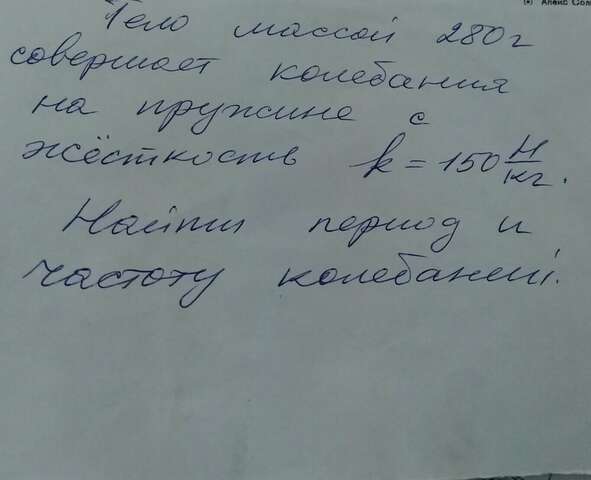 Тело массой 280г
совершает колебания
на пружине с
жёсткость k = 150 Н/кг.
Найти период и
частоту колебаний.